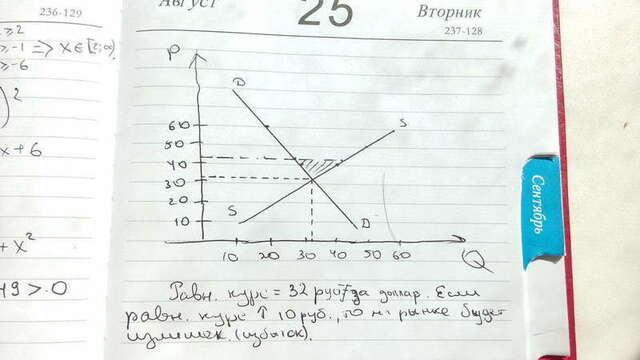 236-129
Август
25
Вторник
237-128
≥ 2
≥ -1 => x ∈ [2; ∞)
≥ -6
) 2
x + 6
+ x²
49 > 0
P
D
S
60
50
40
30
20
10
S
D
10 20 30 40 50 60
Q
Сентябрь
Равн. курс = 32 руб за доллар. Если
равн. курс ↑ 10 руб., то на рынке будет
излишек. (избыток).